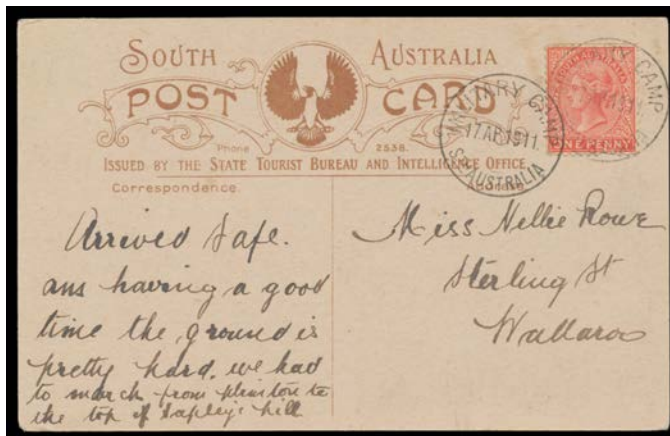 SOUTH AUSTRALIA
POST CARD
Phone 2538.
ISSUED BY THE STATE TOURIST BUREAU AND INTELLIGENCE OFFICE
Correspondence.
SOUTH AUSTRALIA
ONE PENNY
MILITARY CAMP
17 AP 1911
S. AUSTRALIA
CAMP
Arrived Safe.
ans having a good
time the ground is
pretty hard. we had
to march from to
the top of Tapleys hill
Miss Nellie Rowe
Sterling St
Wallaroo